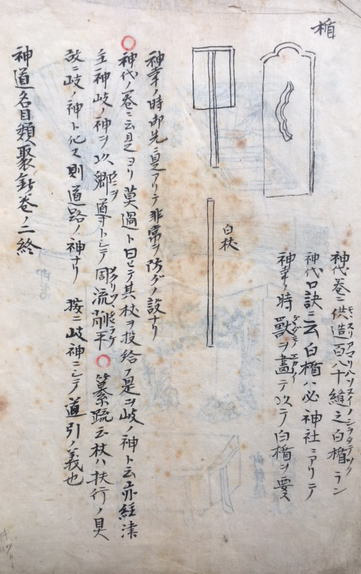 楯
神代巻ニ供造百八十縫之白楯トラン
神代口訣ニ云白楯ハ必神社ニアリテノ
神幸ノ時獣ヲ畫テ以テ白楯ヲ要ス
白杖
神幸ノ時御先ニ立アリテ非常ヲ防グノ設ナリ
○神代ノ巻ニ云是ヨリ莫過ト曰ヒテ其杖ヲ投給フ是ヲ岐ノ神ト云亦経津
主ノ神岐ノ神ヲ以郷導トシテ周流削平○纂疏云杖ハ扶行ノ具
故ニ岐ノ神ト化ス則道路ノ神ナリ 按ニ岐神ニシテノ道引ノ義也
神道名目類聚鈔巻ノ二終